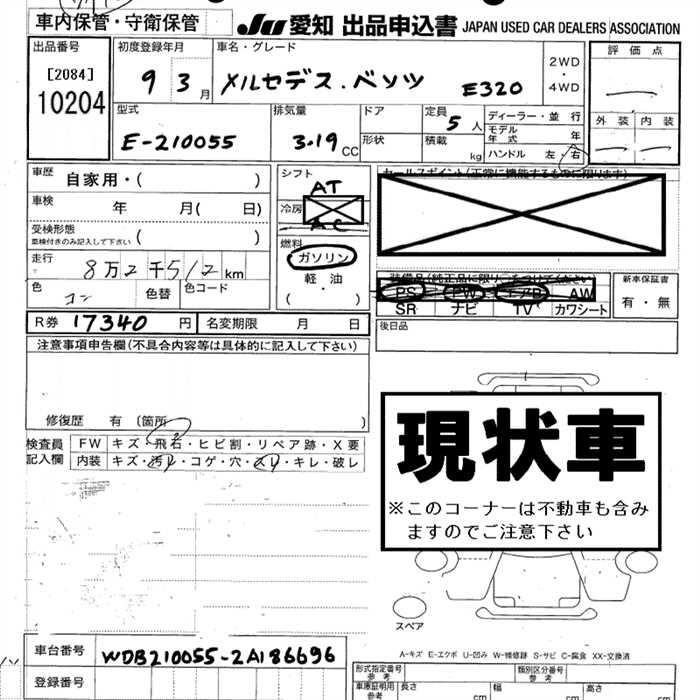 車内保管・守衛保管
JU 愛知 出品申込書 JAPAN USED CAR DEALERS ASSOCIATION
出品番号
[2084]
10204
初度登録年月
9 3月
車名・グレード
メルセデス・ベンツ E320
2WD
・
4WD
評価点
外装 内装
型式
E-210055
排気量
3.19 CC
ドア
形状
定員 5人
積載 kg
ディーラー・並行
モデル年式 年
ハンドル 左・右
車歴 自家用・( )
車検 年 月( 日)
受検形態
車検付きのみ記入して下さい ( )
走行 8万2千512km
色
色替
色コード
シフト
AT
冷房
AC
燃料
ガソリン
軽・油
( ・ )
セールスポイント(正常に機能するものに限ります)
装備品(純正品に限り○をつけてください)
PS PW AW
SR ナビ TV カワシート
新車保証書
有・無
R券 17340円 名変期限 月 日
後日品
注意事項申告欄(不具合内容等は具体的に記入して下さい)
修復歴 有(箇所 )
検査員記入欄
FW キズ・飛石・ヒビ割・リペア跡・X要
内装 キズ・汚れ・コゲ・穴・スレ・キレ・破レ
現状車
※このコーナーは不動車も含み
ますのでご注意下さい
スペア
A-キズ E-エクボ U-凹み W-補修跡 S-サビ C-腐食 XX-交換済
車台番号 WDB210055-2A186696
登録番号
形式指定番号
参考
類別区分番号
参考
車庫証明用
参考
長さ cm 幅 cm 高さ cm